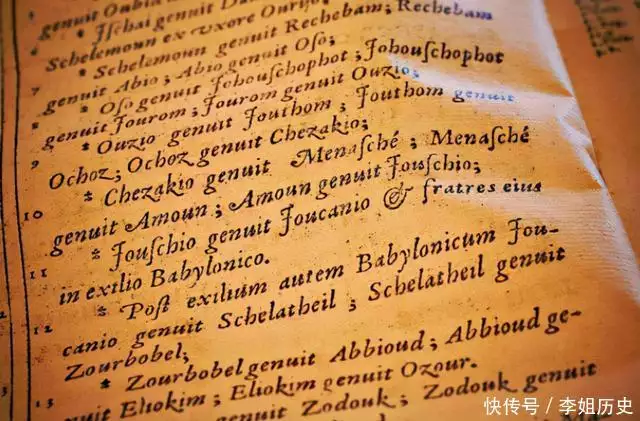 genuit Oubid
* Jschai genuit Da
Schelemoun ex vxore Ourijo
* Schelemoun genuit Rechebam; Rechebam
7
genuit Abio; Abio genuit Oso;
* Oso genuit Jehouſchophot; Johouſchophot
8
genuit Jourom; Jourom genuit Ouzio;
* Ouzio genuit Jouthom; Jouthom genuit
9
Ochoz; Ochoz genuit Chezakio;
* Chezakio genuit Menaſché; Menaſché
10
genuit Amoun; Amoun genuit Jouſchio;
* Jouſchio genuit Joucanio & fratres eius
11
in exilio Babylonico.
* Poſt exilium autem Babylonicum Jou-
12
canio genuit Schelatheil; Schelatheil genuit
Zourbobel;
* Zourbobel genuit Abbioud; Abbioud ge-
13
nuit Eliokim; Eliokim genuit Ozour.
genuit Zodouk; Zodouk genuit
快传号/李姐历史